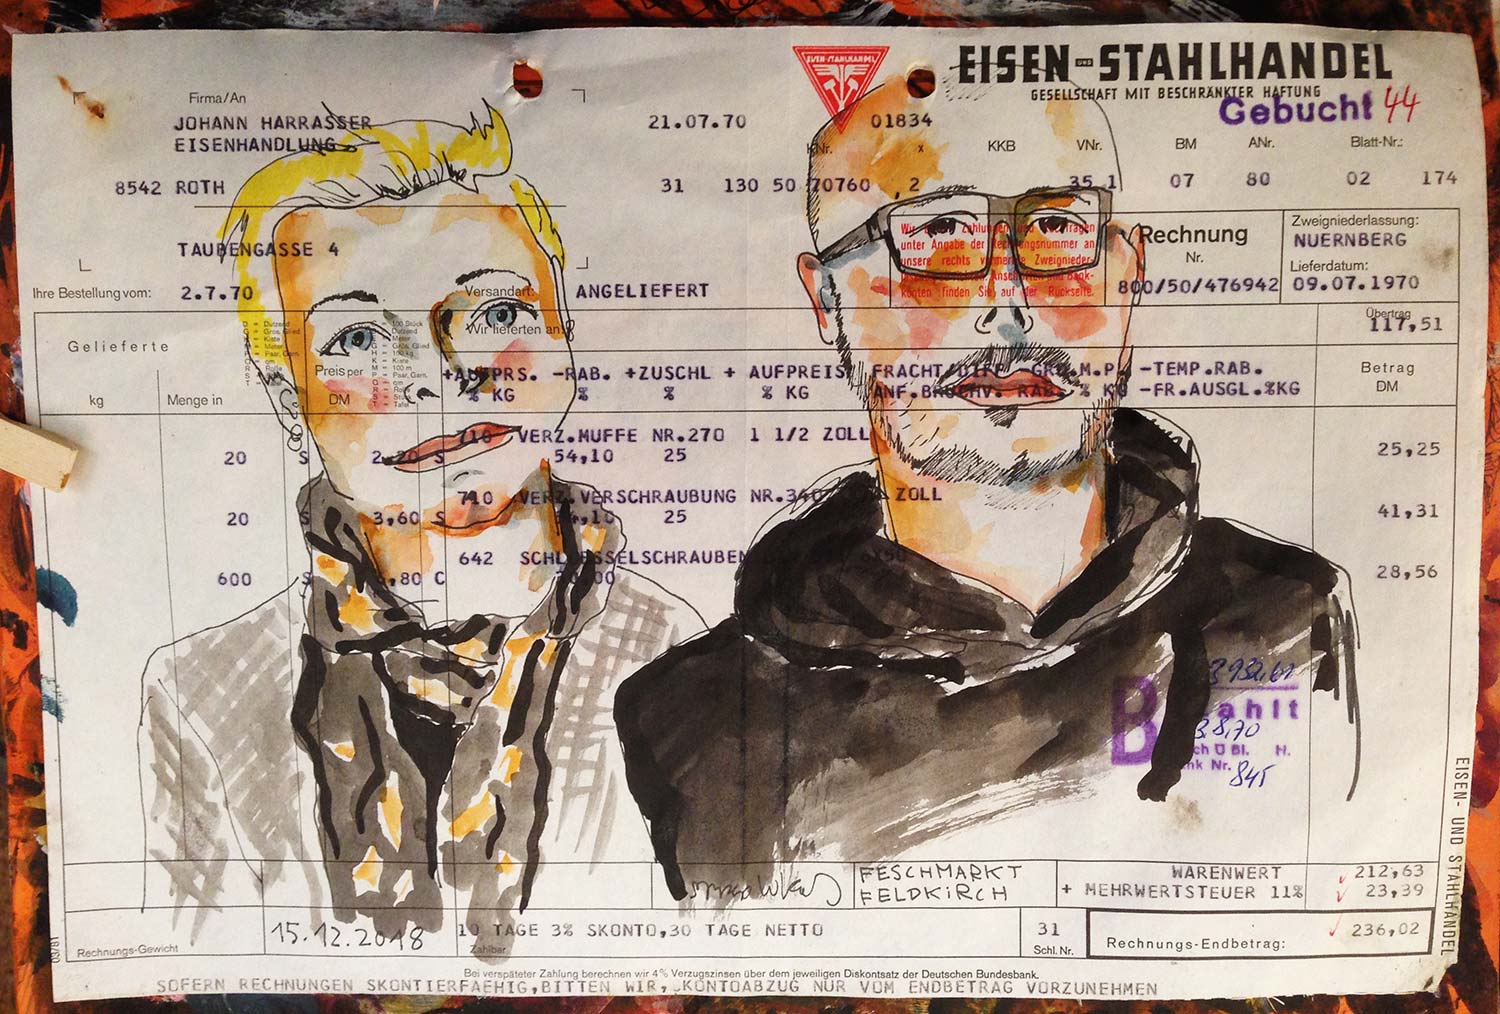 EISEN-STAHLHANDEL
EISEN UND STAHLHANDEL
GESELLSCHAFT MIT BESCHRÄNKTER HAFTUNG
Gebucht 44
Firma/An
JOHANN HARRASSER
EISENHANDLUNG
21.07.70 01834
KNr. x KKB VNr. BM ANr. Blatt-Nr.:
8542 ROTH
31 130 50 70760 2 35 1 07 80 02 174
TAUBENGASSE 4
Wir Zahlungen und
unter Angabe der Rechnungsnummer an
unsere rechts Zweignieder-
Bank-
konten finden Sie auf der Rückseite.
Rechnung
Nr.
800/50/476942
Zweigniederlassung:
NUERNBERG
Lieferdatum:
09.07.1970
Ihre Bestellung vom: 2.7.70
Versandart: ANGELIEFERT
Wir lieferten an:
Übertrag
117,51
Gelieferte
kg Menge in
Preis per
DM
D = Dutzend
C = 100 Stück
+AUFPRS. -RAB. +ZUSCHL + AUFPREIS FRACHT/DIFF -GRU.M.P. -TEMP.RAB.
% KG % % % KG ANF.BRUCHV. RAB. % KG -FR.AUSGL.%KG
Betrag
DM
710 VERZ.MUFFE NR.270 1 1/2 ZOLL
20 S 2,20 S 54,10 25 25,25
710 VERZ.VERSCHRAUBUNG NR.340 ZOLL
20 S 3,60 S 54,10 25 41,31
642 SCHLUESSELSCHRAUBEN
600 S 6,80 C 28,56
3932,61
Bezahlt
3.8.70
Nr. 845
EISEN- UND STAHLHANDEL
FESCHMARKT
FELDKIRCH
WARENWERT 212,63
+ MEHRWERTSTEUER 11% 23,39
Rechnungs-Gewicht
15.12.2018
10 TAGE 3% SKONTO,30 TAGE NETTO
Zahlbar
31
Schl. Nr.
Rechnungs-Endbetrag: 236,02
Bei verspäteter Zahlung berechnen wir 4% Verzugszinsen über dem jeweiligen Diskontsatz der Deutschen Bundesbank.
SOFERN RECHNUNGEN SKONTIERFAEHIG,BITTEN WIR,SKONTOABZUG NUR VOM ENDBETRAG VORZUNEHMEN